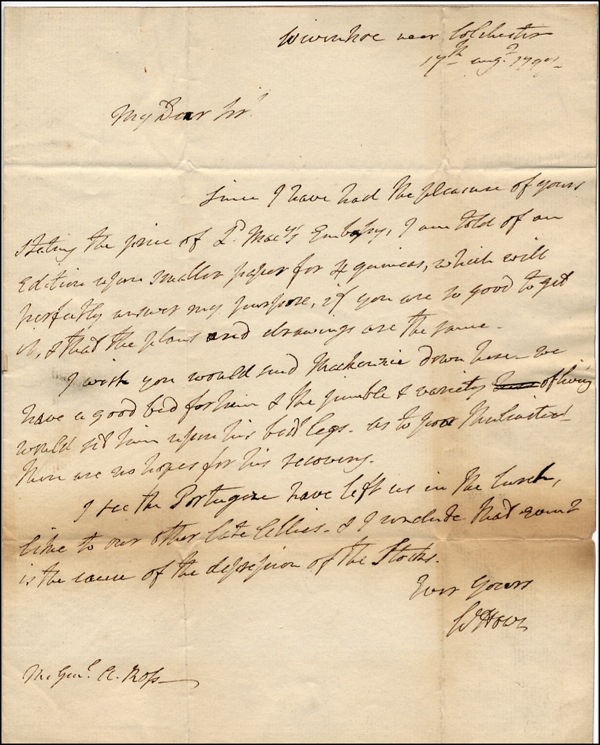 Wivenhoe near Colchester
17th augt. 1797.
My Dear Sir
Since I have had the pleasure of yours
stating the price of Ld. Mac's Embassy, I am told of an
Edition upon smaller paper for 4 guineas, which will
perfectly answer my purpose, if you are so good to get
it, & that the plans and drawings are the same.
I wish you would send Mackenzie down here we
have a good bed for him & the jumble & variety of living
would set him upon his best legs. as to poor
there are no hopes for his recovery.
I see the Portugueze have left us in the lurch,
like to our other late Allies. & I conclude that event
is the cause of the depression of the Stocks.
Ever Yours
Wm Howe
M. Genl. A. Ross